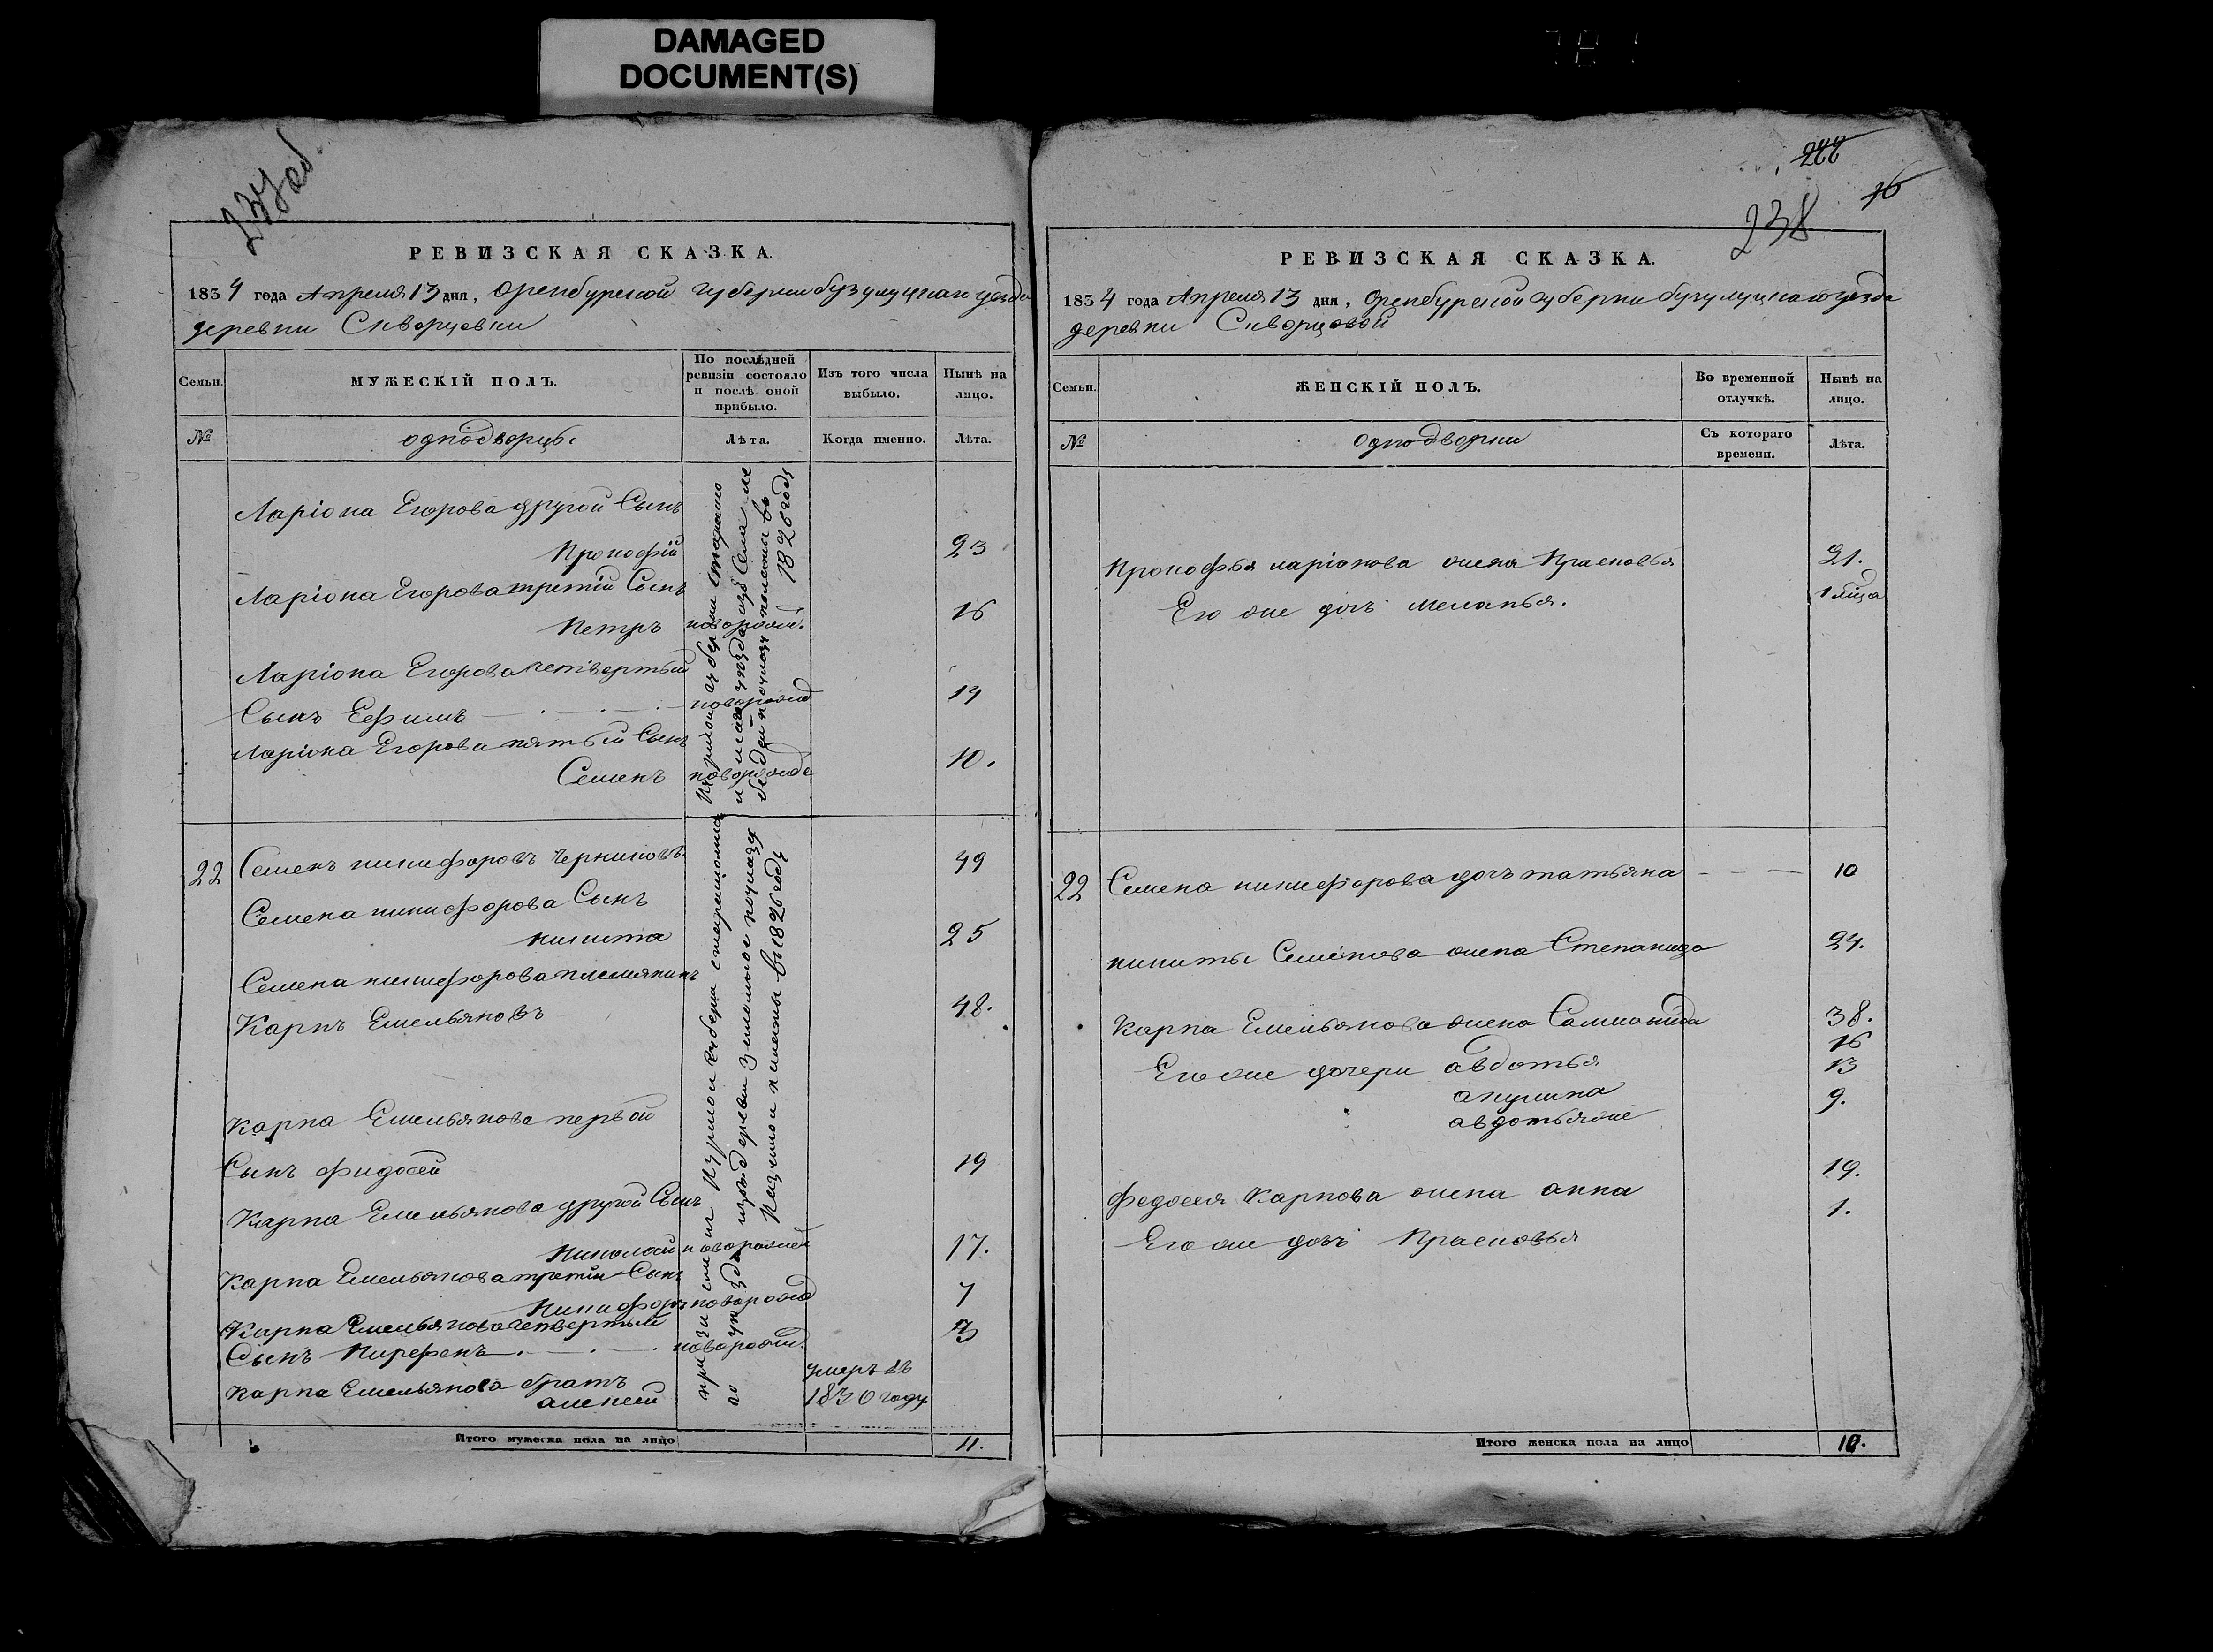 DAMAGED
DOCUMENT(S)
237 об
РЕВИЗСКАЯ СКАЗКА.
1834 года Апреля 13 дня, Оренбургской губернии бузулуцкаго уезда
деревни Скворцовки
Семьи.
МУЖЕСКІЙ ПОЛЪ.
По послѣдней
ревизіи состояло
и послѣ оной
прибыло.
Изъ того числа
выбыло.
Нынѣ на
лицо.
№
однодворцы
Лѣта.
Когда именно.
Лѣта.
Ларіона Егорова другой Сынъ
Прокофій 23
Ларіона Егорова третій Сынъ
Петръ новорожд. 16
Ларіона Егорова четвертый
Сынъ Ефимъ новорожд 14
Ларіона Егорова пятый Сынъ
Семенъ новорожде 10.
1826 году
22 Семенъ никифоровъ Черниковъ. 49
Семена никифорова Сынъ
никита 25
Семена никифорова племянникъ
Карпъ Емельяновъ 48.
Карпа Емельянова первой
Сынъ фидосей 19
Карпа Емельянова другой Сынъ
Николай новорожде 17.
Карпа Емельянова третій Сынъ
Никифоръ новорожд 7
Карпа Емельянова четвертый
Сынъ Парфенъ новорожд. 3
Карпа Емельянова братъ
алексей
умеръ въ
1830 году
въ 1826 году
Итого мужеска пола на лицо 11.
222
16
238
РЕВИЗСКАЯ СКАЗКА.
1834 года Апреля 13 дня, Оренбургской губерни бузулуцкаго уезда
деревни Скворцовой
Семьи.
ЖЕНСКІЙ ПОЛЪ.
Во временной
отлучкѣ.
Нынѣ на
лицо.
№
однодворки
Съ котораго
времени.
Лѣта.
Прокофья ларіонова жена Прасковья 21.
Его же дочь меланья.
22 Семена никифорова дочь татьяна 10
никиты Семенова жена Степанида 24.
Карпа Емельянова жена Саломанида 38.
Его же дочери авдотья 16
акулина 13
авдотья же 9.
Федосея Карпова жена анна 19.
Его же дочь Прасковья 1.
Итого женска пола на лицо 10.